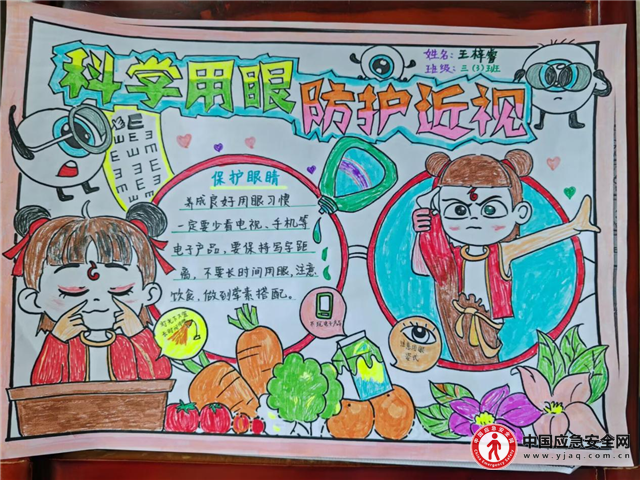 科学用眼
防护近视
姓名:王梓萱
班级:三(3)班
保护眼睛
养成良好用眼习惯
一定要少看电视、手机等
电子产品,要保持写字距
离,不要长时间用眼,注意
饮食,做到荤素搭配。
中国应急安全网
www.yjaq.com.cn